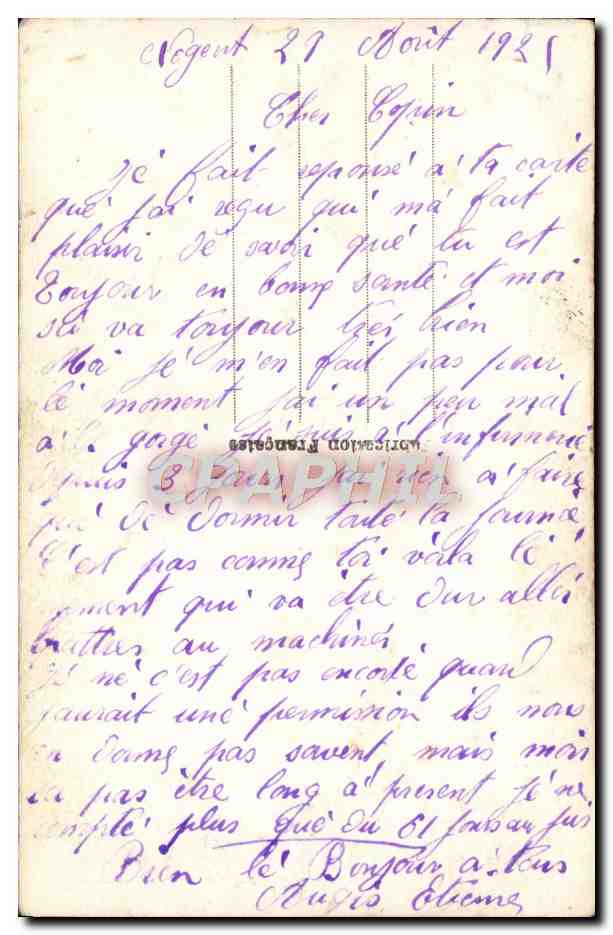 Nogent 29 Août 1921
Cher Copin
Jé fait reponsé a' ta carte
qué j'ai reçu qui m'a fait
plaisir dé savoir qué tu est
Toujour en bonne santé et moi
sa va toujour trés bien
Moi jé m'en fait pas pour
lé moment j'ai un peu mal
a' la gorgé Jé suis a' l'infirmerie
depuis 3 jours, j'ai rien a' faire
qué dé dormir touté la journé
C'est pas comme toi voila lé
moment qui va être dur aller
battres au machines
Jé né c'est pas encoré quand
j'aurait uné permission ils nous
en donne pas savent, mais mois
sa pas être long a' présent jé ne
compté plus qué du 61 jours au jus
Bien lé Bonjour a' tous
Augis Etienne
Fabrication Française
CPAPHIL